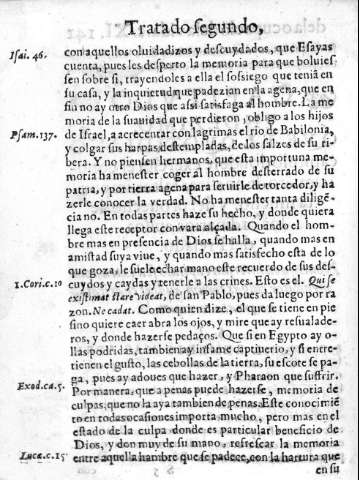 Tratado segundo,
Isai. 46.
con aquellos oluidadizos y descuydados, que Esayas
cuenta, pues les desperto la memoria para que boluies
sen sobre si, trayendoles a ella el sossiego que tenia en
su casa, y la inquietud que padezian en la agena, que en
fin no ay otro Dios que assi satisfaga al hombre. La me
moria de la suauidad que perdieron, obligo a los hijos
Psam. 137.
de Israel, a acrecentar con lagrimas el rio de Babilonia,
y colgar sus harpas destempladas, de los salzes de su ri
bera. Y no piensen hermanos, que esta importuna me
moria ha menester coger al hombre desterrado de su
patria, y por tierra agena para seruirle de torcedor, y ha
zerle conocer la verdad. No ha menester tanta diligẽ
cia no. En todas partes haze su hecho, y donde quiera
llega este receptor con vara alçada. Quando el hom-
bre mas en presencia de Dios se halla, quando mas en
amistad suya viue, y quando mas satisfecho esta de lo
que goza, le suele echar mano este recuerdo de sus des-
1. Cori. c. 10
cuydos y caydas y tenerle a las crines. Esto es el. Qui se
existimat stare videat, de san Pablo, pues da luego por ra
zon. Ne cadat. Como quien dize, el que se tiene en pie
sino quiere caer abra los ojos, y mire que ay resualade-
ros, y donde hazerse pedaços. Que si en Egypto ay o-
llas podridas, tambien ay infame captiuerio, y si entre-
tienen el gusto, las cebollas de la tierra, su escote se pa-
Exod. ca. 5.
ga, pues ay adoues que hazer, y Pharaon que sufrir.
Por manera, que a penas puede hazerse, memoria de
culpas, que no la aya tambien de penas. Este conocimiẽ
to en todas ocasiones importa mucho, pero mas en el
estado de la culpa donde es particular beneficio de
Dios, y don muy de su mano, refrescar la memoria
Luca. c. 15
entre aquella hambre que se padece, con la hartura que
en su